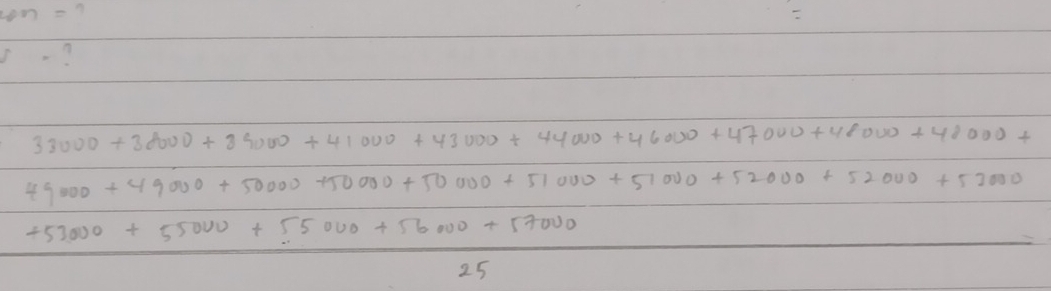 33000 + 38000 + 39000 + 41000 + 43000 + 44000 + 46000 + 47000 + 48000 + 48000 +
49000 + 49000 + 50000 + 50000 + 50000 + 51000 + 51000 + 52000 + 52000 + 53000
+ 53000 + 55000 + 55000 + 56000 + 57000
25